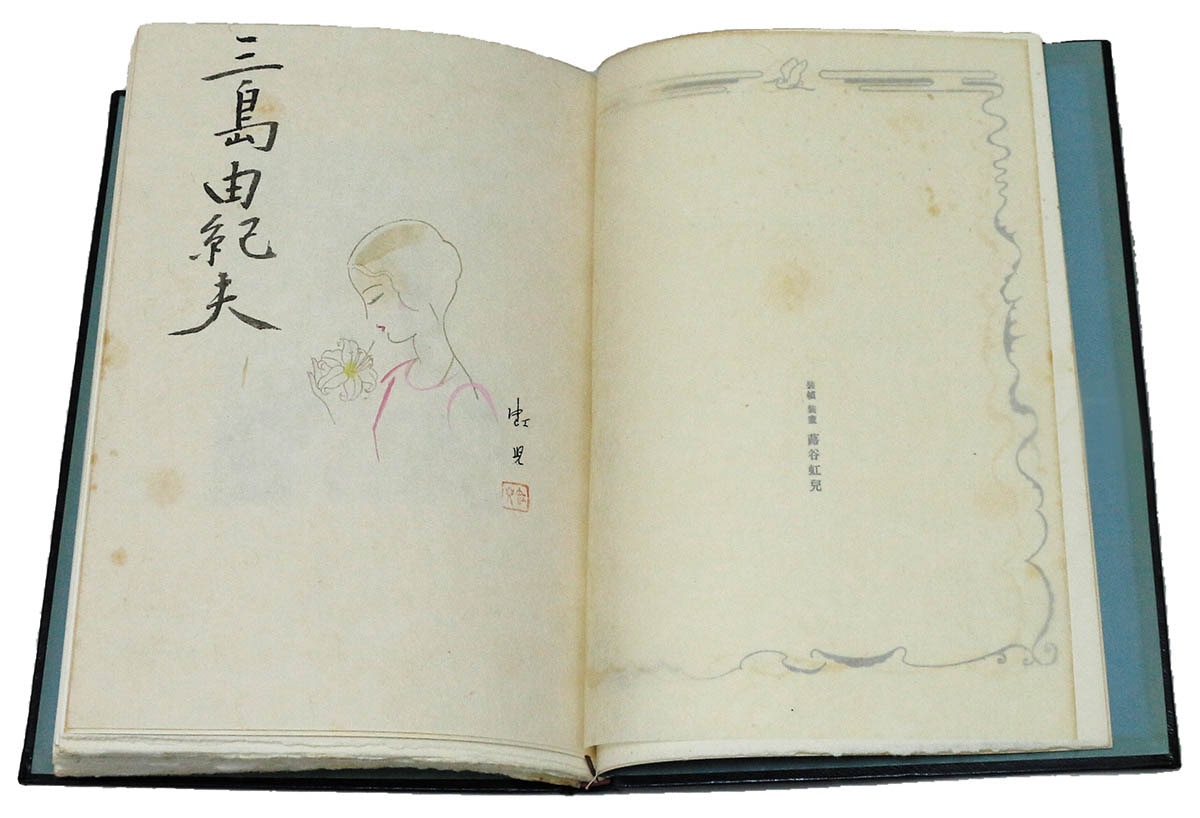 三島由紀夫
虹児
装幀 装畫 蕗谷虹兒